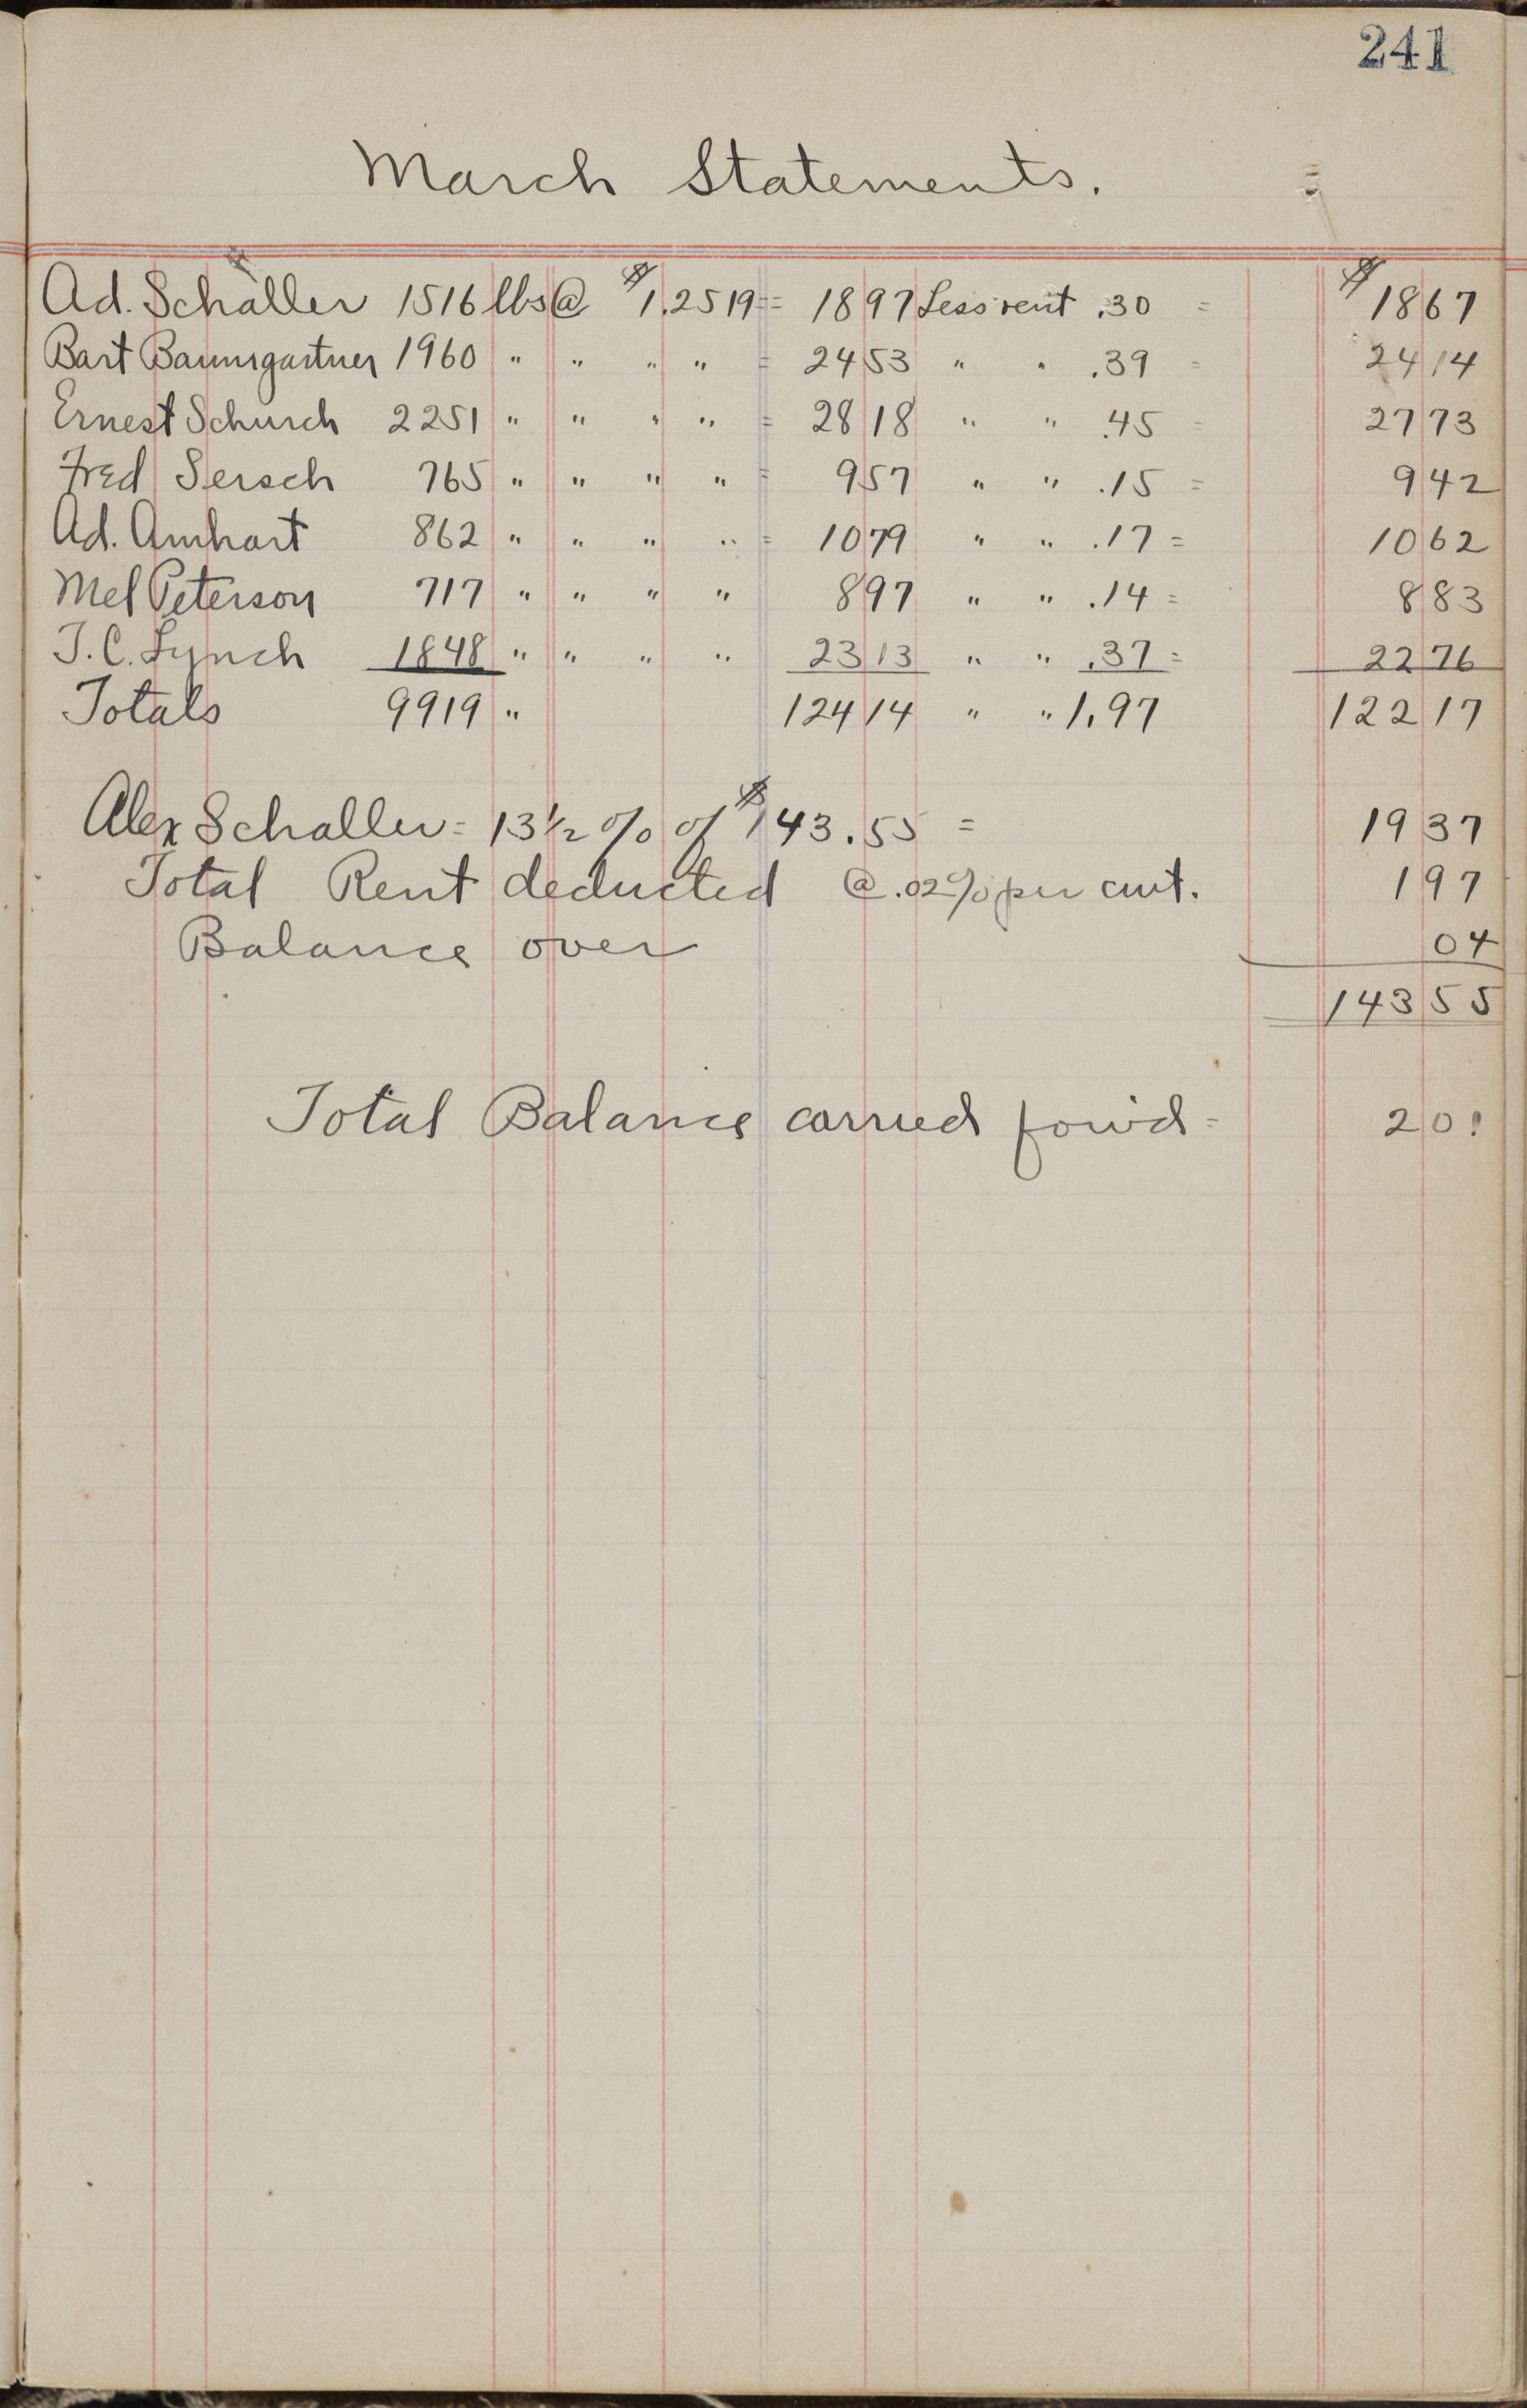 241
March Statements.
Ad. Schaller 1516 lbs @ $1.2519 = 18 97 Less rent .30 = $18 67
Bart Baumgartner 1960 " " " " = 24 53 " " .39 = 24 14
Ernest Schurch 2251 " " " " = 28 18 " " .45 = 27 73
Fred Sersch 765 " " " " = 9 57 " " .15 = 9 42
Ad. Amhart 862 " " " " = 10 79 " " .17 = 10 62
Mel Peterson 717 " " " " 8 97 " " .14 = 8 83
T.C. Lynch 1848 " " " " 23 13 " " .37 = 22 76
Totals 9919 " 124 14 " " 1.97 122 17
Alex Schaller = 13 1/2 % of $143.55 = 19 37
Total Rent deducted @ .02% per cwt. 1 97
Balance over 04
143 55
Total Balance carried for'd = 20!